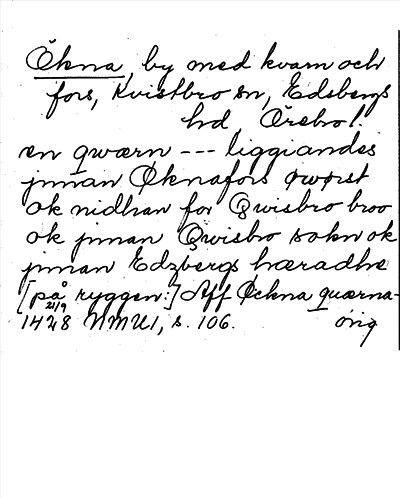 Ökna, by med kvarn och
fors, Kvistbro sn, Edsbergs
hd Örebro l.
en qwærn --- liggiandes
jnnan Øknafors øwørst
ok nidhan for Qwisbro broo
ok jnnan Qwisbro sokn ok
jnnan Edzbergs hæradhe
[på ryggen:] Aff Øckna quærna-
21/9
1428 NMU1, s. 106. orig